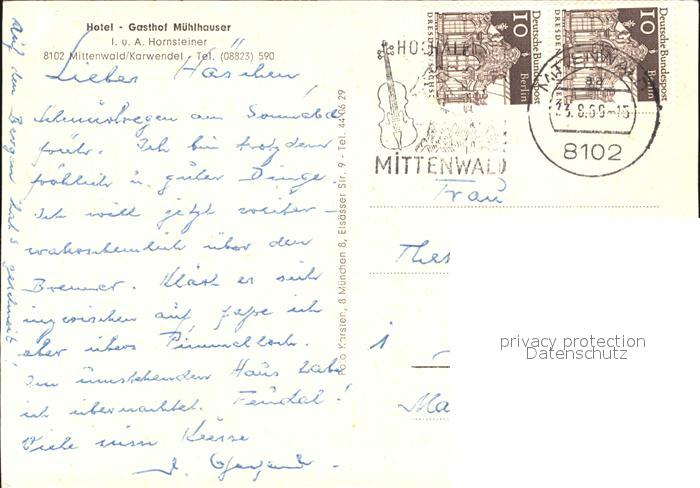 Hotel - Gasthof Mühlhauser
I. u. A. Hornsteiner
8102 Mittenwald/Karwendel - Tel. (08823) 590
Lieber Häschen!
Schnürlregen am Sonnabd
früh. Ich bin trotzdem
fröhlich u. guter Dinge.
Ich will jetzt weiter -
wahrscheinlich über den
Brenner. Klärt es sich
inzwischen auf, fahre ich
aber übers Timmelsjoch.
Im umstehenden Haus habe
ich übernachtet. Feudal!
Viele
Auf den Bergen hat's geschneit!
Foto Karsten, 8 München 8, Elsässer Str. 9 - Tel. 44 06 29
HOCHALP
MITTENWALD
10
Deutsche Bundespost
Berlin
DRESDEN/SACHSEN
10
Deutsche Bundespost
Berlin
MITTENWALD
23.8.68-15
8102
Frau
Thes
i
Ma
privacy protection
Datenschutz